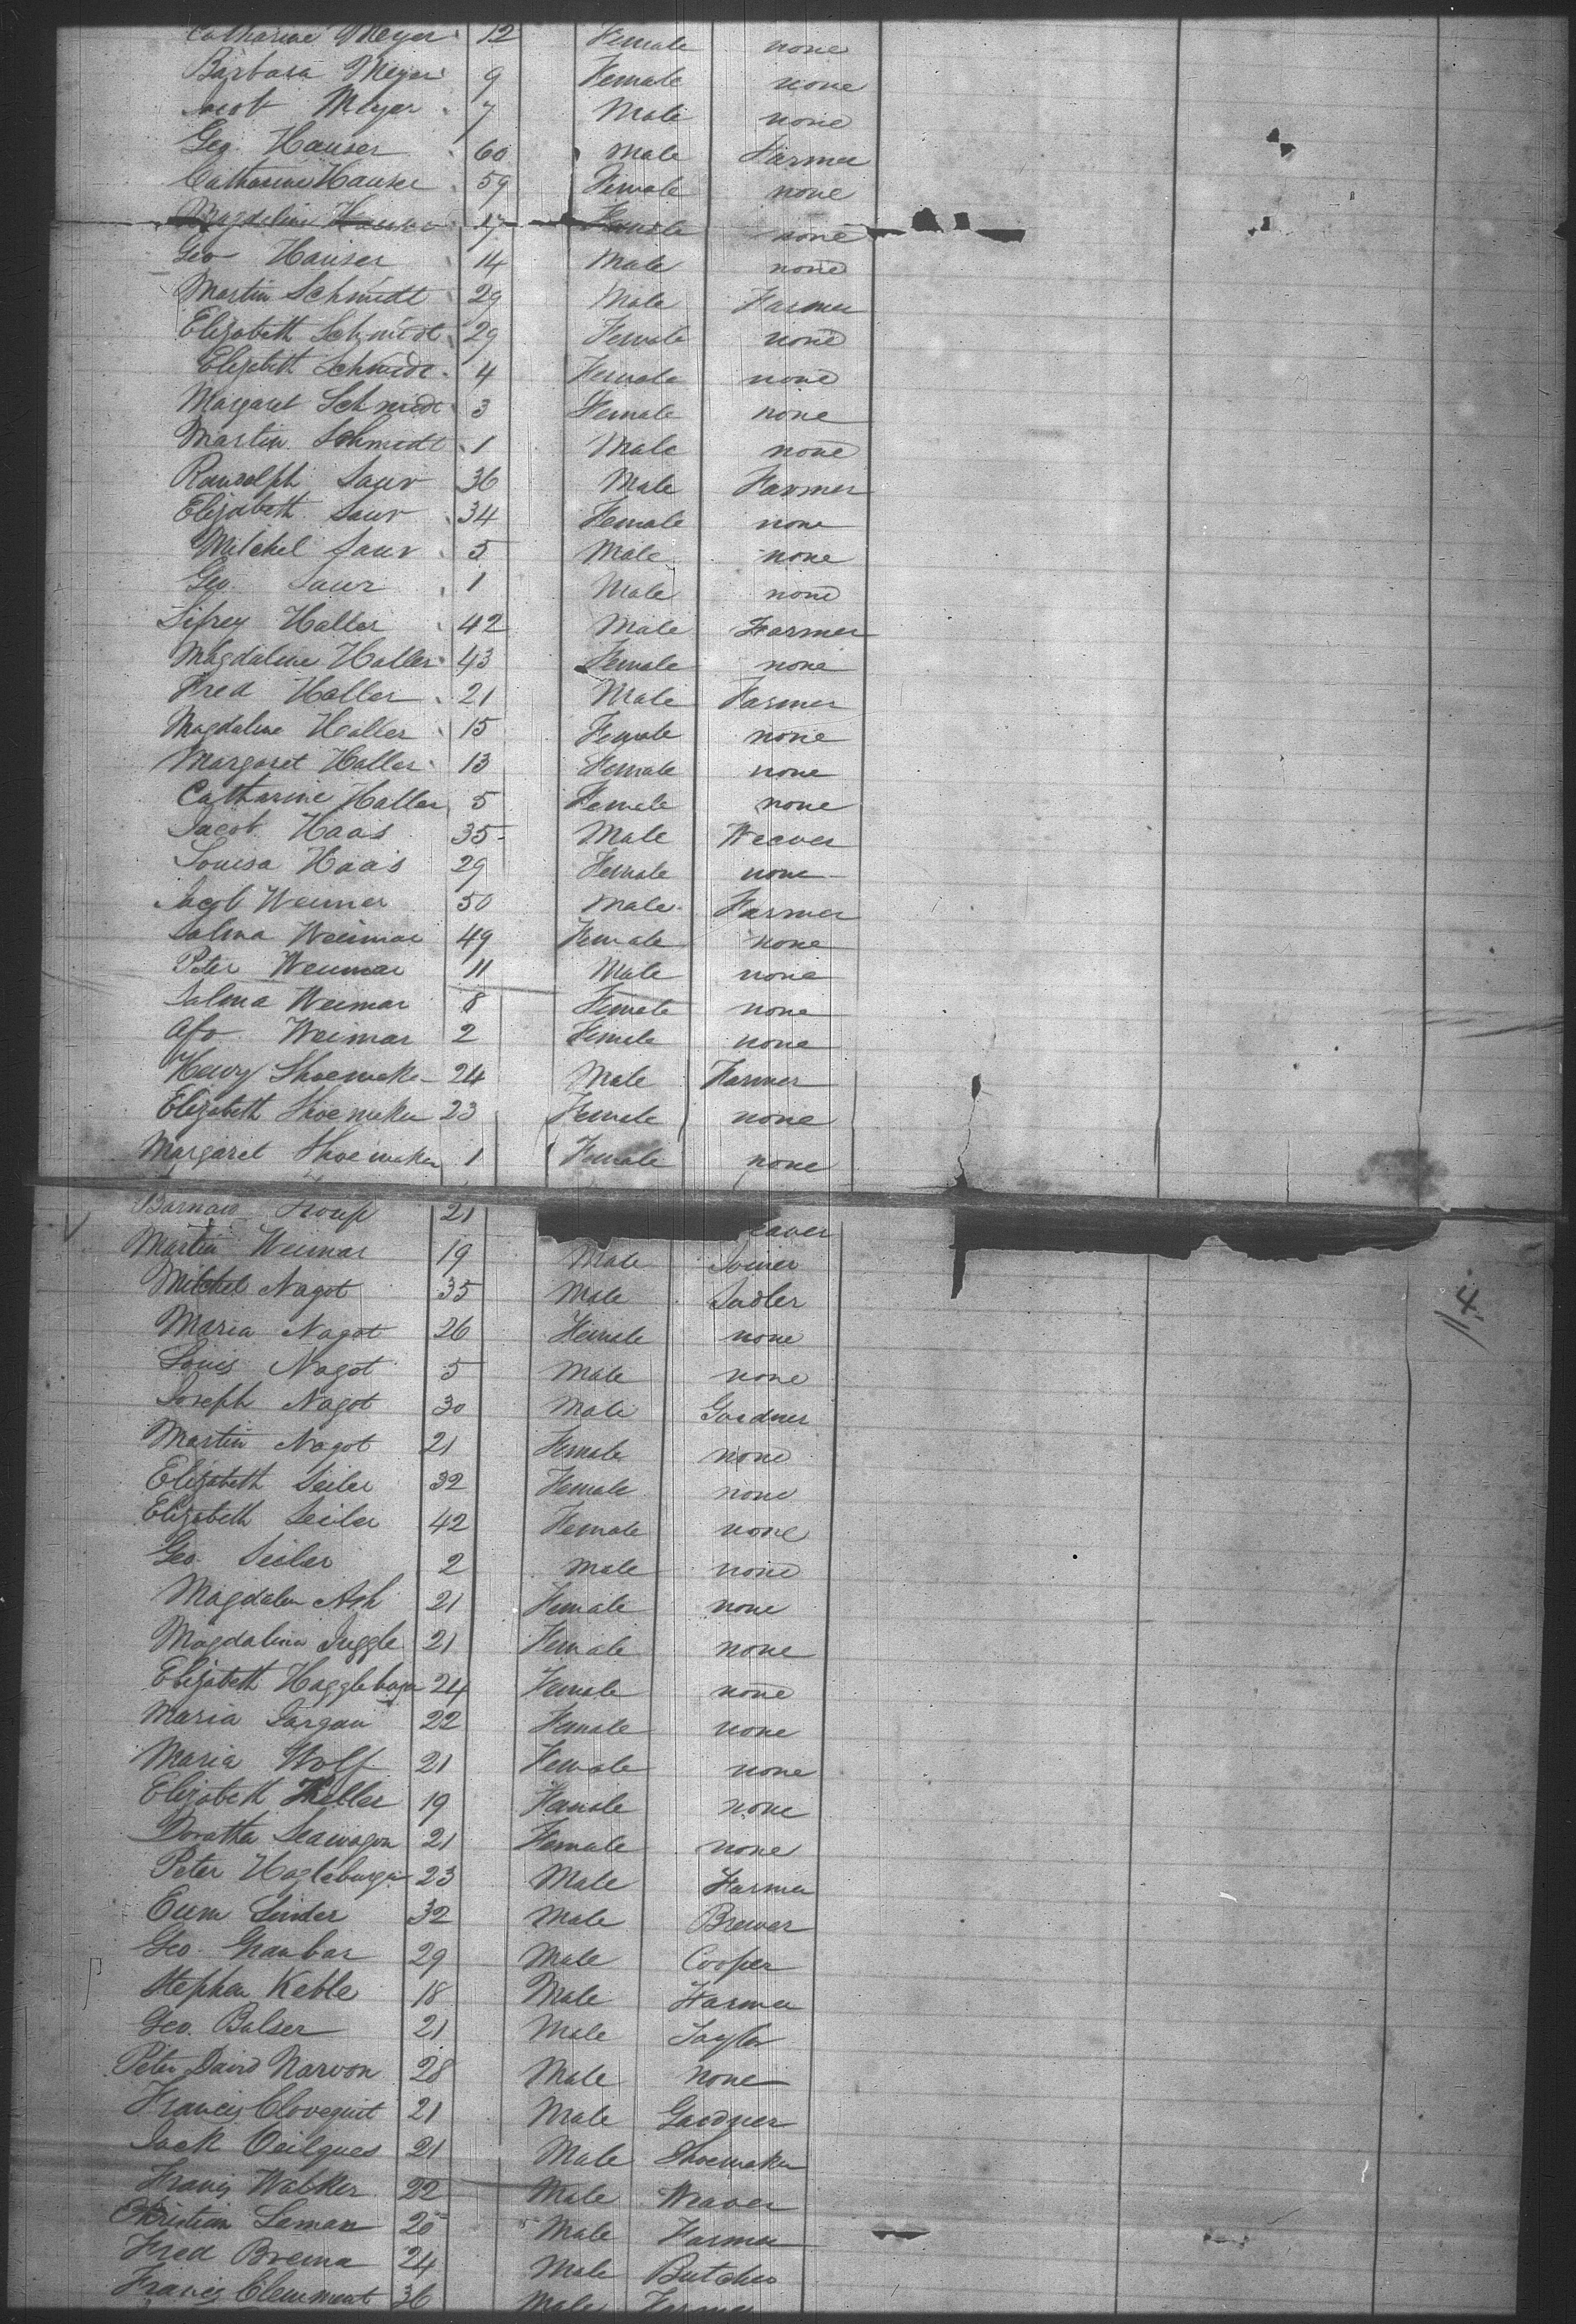 Catharine Meyer 12 Female none
Barbara Meyer 9 Female none
Jacob Meyer 7 Male none
Geo. Hauser 60 Male Farmer
Catharine Hauser 59 Female none
Magdaline Hauser 17 Female none
Geo Hauser 14 Male none
Martin Schmidt 29 Male Farmer
Elizabeth Schmidt 29 Female none
Elizabeth Schmidt 4 Female none
Margaret Schmidt 3 Female none
Martin Schmidt 1 Male none
Randolph Saur 36 Male Farmer
Elizabeth Saur 34 Female none
Mitchel Saur 5 Male none
Geo. Saur 1 Male none
Sifrey Haller 42 Male Farmer
Magdaline Haller 43 Female none
Fred Haller 21 Male Farmer
Magdaline Haller 15 Female none
Margaret Haller 13 Female none
Catharine Haller 5 Female none
Jacob Haas 35 Male Weaver
Louisa Haas 29 Female none
Jacob Weimer 50 Male Farmer
Salma Weimar 49 Female none
Peter Weimar 11 Male none
Salma Weimar 8 Female none
Weimar 2 Female none
Henry Shoemaker 24 Male Farmer
Elizabeth Shoemaker 23 Female none
Margaret Shoemaker 1 Female none
Barnard Troup 21 eaver
Martin Weimar 19 Male Joiner
Mitchel Nagot 35 Male Sadler
4
Maria Nagot 26 Female none
Louis Nagot 5 Male none
Joseph Nagot 30 Male Gardner
Martin Nagot 21 Female none
Elizabeth Seiler 32 Female none
Elizabeth Seiler 42 Female none
Geo. Seiler 2 Male none
Magdalen Ash 21 Female none
Magdalina Juggle 21 Female none
Elizabeth 24 Female none
Maria 22 Female none
Maria Wolf 21 Female none
Elizabeth Keller 19 Female none
Doratha Seawagon 21 Female none
Peter Hagleburger 23 Male Farmer
32 Male Brewer
Geo. Graubar 29 Male Cooper
Stephen Keble 18 Male Farmer
Geo. Balser 21 Male Taylor
Peter David Narvon 28 Male none
Francis Clovequit 21 Male Gardner
Jack 21 Male Shoemaker
Francis Walker 22 Male Weaver
Christian Laman 20 Male Farmer
Fred Brema 24 Male Butcher
Francis Clemment 36 Male Farmer